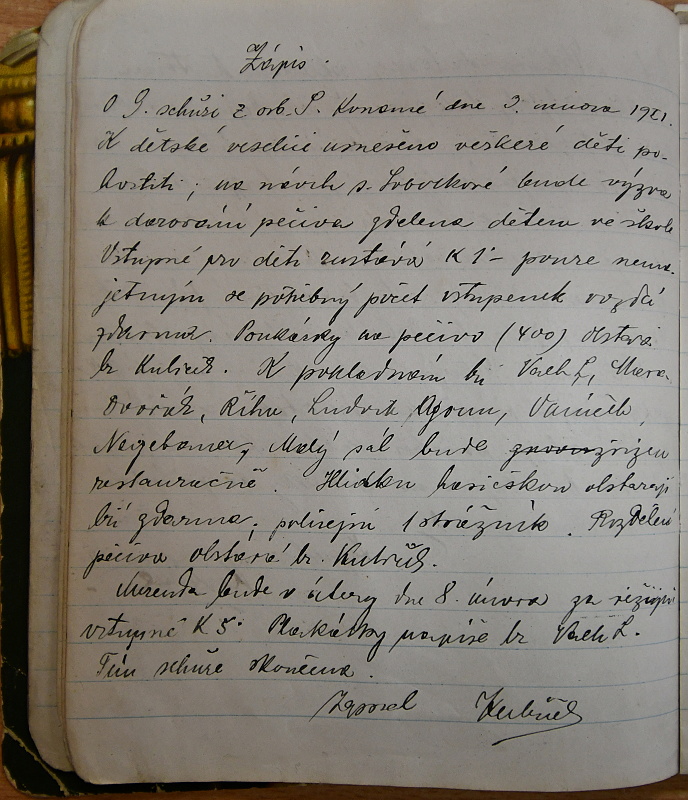 Zápis.
O 9. schůzi z orb. P. konané dne 3. února 1921.
K dětské veselici usneseno veškeré děti po-
hostiti; na návrh s. bude výzva
k darování pečiva zdělena dětem ve škole
Vstupné pro děti zůstává K 1·- pouze nema-
jetným se potřebný počet vstupenek vozdá
zdarma. Poukázky na pečivo (400) obstará
br Kubíček. K pokladnám bří Vaeh L,
Dvořák, Říha, Ludvík Vaníček,
Malý sál bude zřízen
restauračně. Hlídku hasičskou obstarají
bří zdarma, policejní 1 strážník. Rozdělení
pečiva obstará br.
Merenda bude v úterý dne 8. února za režijní
vstupné K 5·- Plakátky napíše br L.
Tím schůze skončena.
Zapsal Kubíček